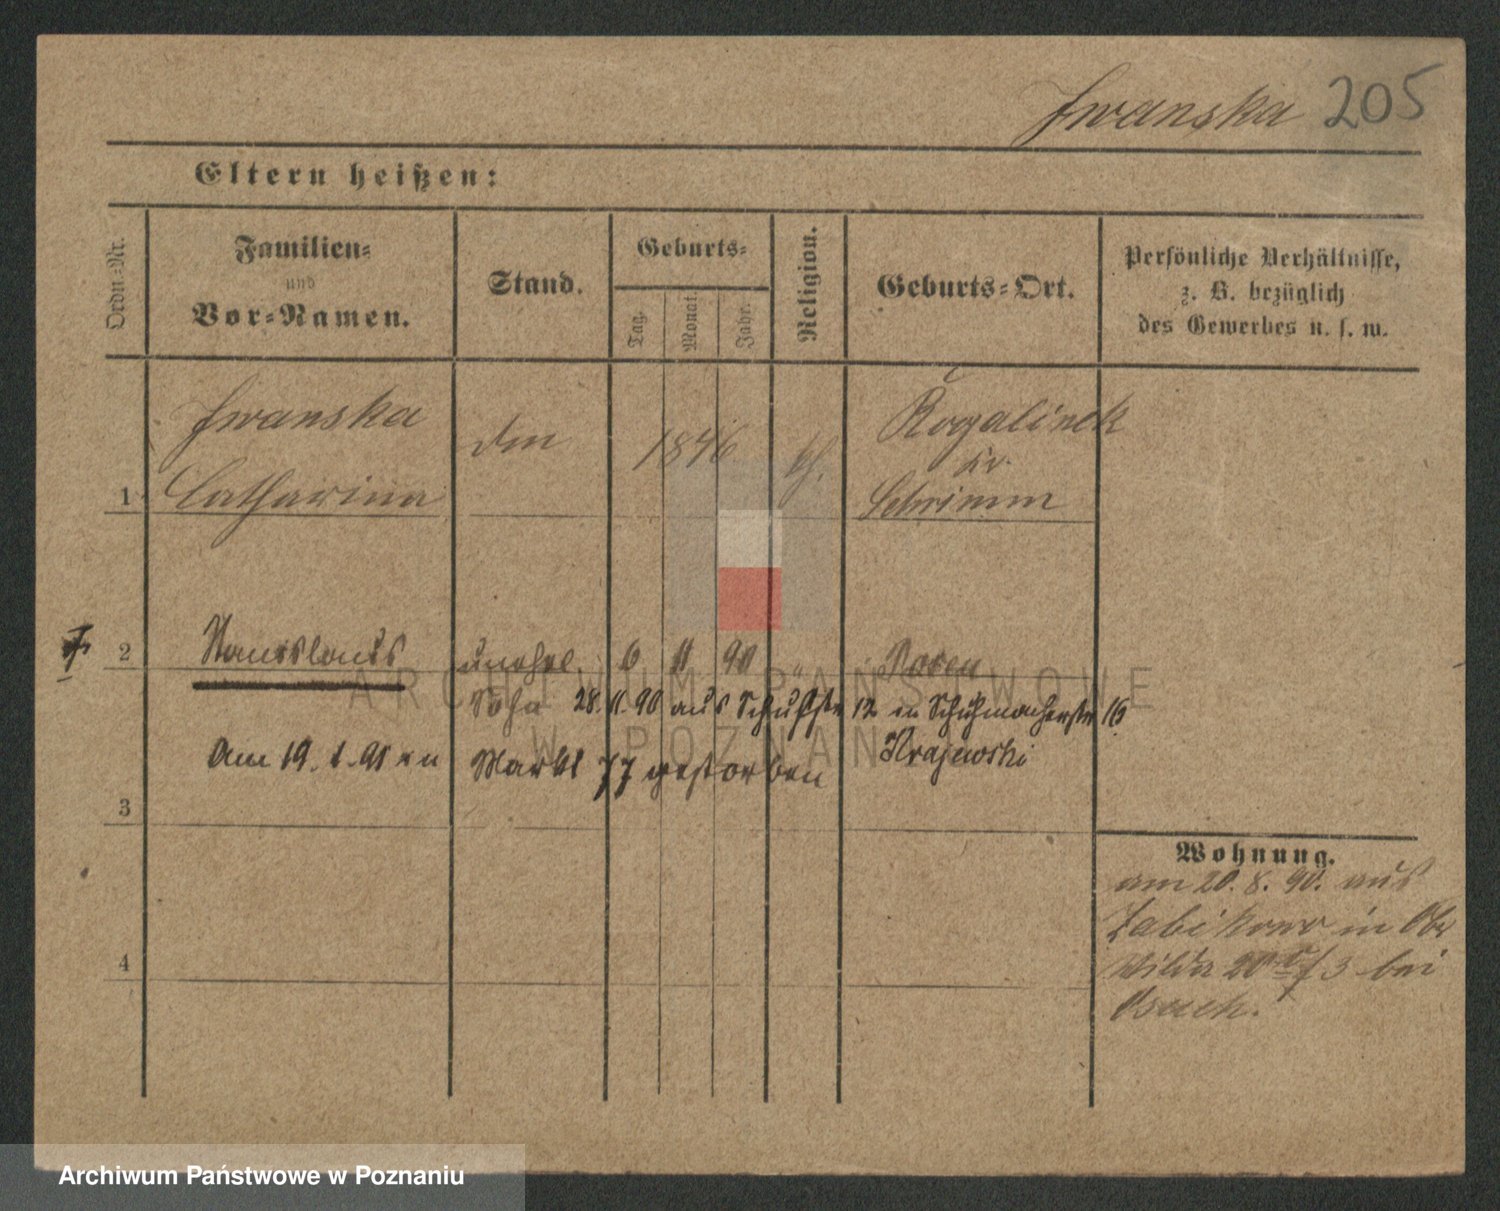 Iwanska 205
Eltern heißen:
Ordn.=Nr.
Familien=
und
Vor=Namen.
Stand.
Geburts=
Tag.
Monat.
Jahr.
Religion.
Geburts=Ort.
Persönliche Verhältnisse,
z. B. bezüglich
des Gewerbes u. s. w.
Iwanska
1 Catharina
1846
Rogalinek
Kr.
Schrimm
2 Stanislaus unehel. 6 11 90 " Posen
Sohn 28.11.90 aus Schulstr 12 in Schuhmacherstr 16
Am 19.1.91 in Markt 77 gestorben Krajewski
3
4
Wohnung.
am 20. 8. 90. aus
Zabikowo in Ob
Wilda 20 3 bei
ARCHIWUM PAŃSTWOWE
W POZNANIU
Archiwum Państwowe w Poznaniu